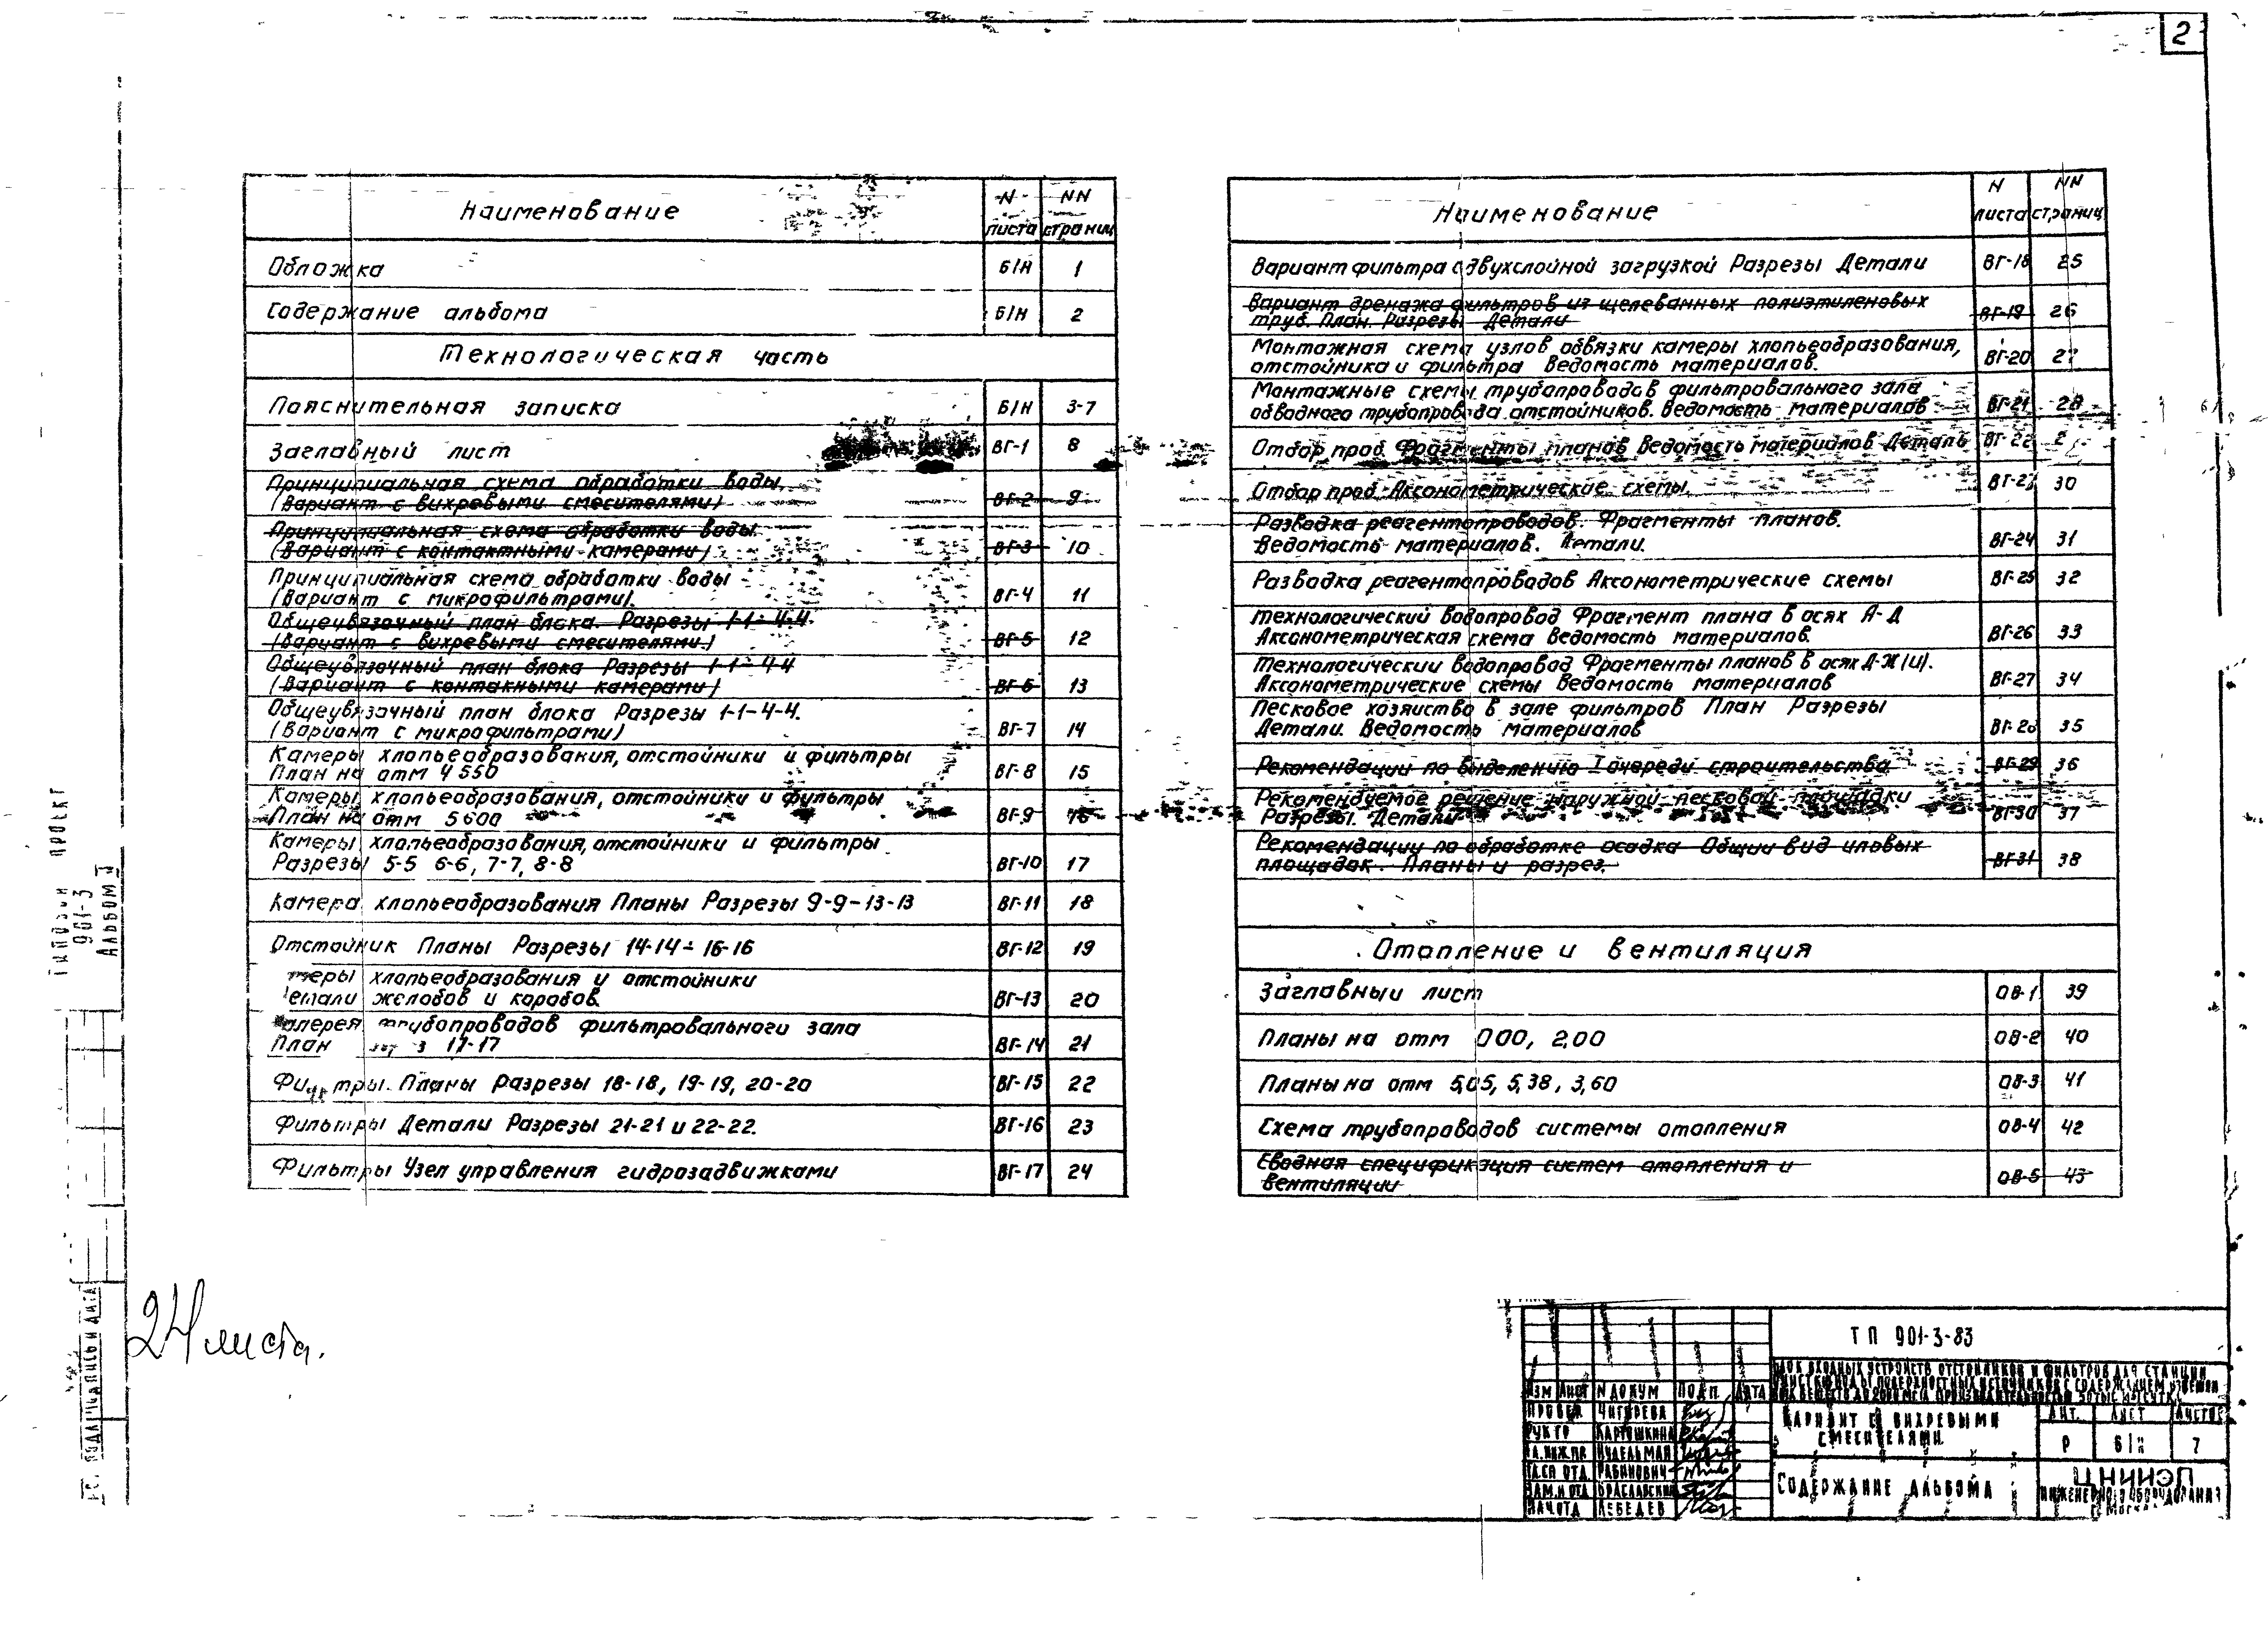 2
Наименование
N листа
NN страниц
Обложка Б/Н 1
Содержание альбома Б/Н 2
Технологическая часть
Пояснительная записка Б/Н 3-7
Заглавный лист ВГ-1 8
Принципиальная схема обработки воды
(Вариант с вихревыми смесителями) ВГ-2 9
Принципиальная схема обработки воды
(Вариант с контактными камерами) ВГ-3 10
Принципиальная схема обработки воды
(Вариант с микрофильтрами). ВГ-4 11
Общеувязочный план блока. Разрезы 1-1÷4-4.
(Вариант с вихревыми смесителями.) ВГ-5 12
Общеувязочный план блока Разрезы 1-1-4-4
(Вариант с контакными камерами) ВГ-6 13
Общеувязочный план блока Разрезы 1-1-4-4.
(Вариант с микрофильтрами) ВГ-7 14
Камеры хлопьеобразования, отстойники и фильтры
План на отм 4 550 ВГ-8 15
Камеры хлопьеобразования, отстойники и фильтры
План на отм 5600 ВГ-9 16
Камеры хлопьеобразования, отстойники и фильтры
Разрезы 5-5 6-6, 7-7, 8-8 ВГ-10 17
Камера хлопьеобразования Планы Разрезы 9-9-13-13 ВГ-11 18
Отстойник Планы Разрезы 14-14÷16-16 ВГ-12 19
хлопьеобразования и отстойники
желобов и коробов. ВГ-13 20
трубопроводов фильтровального зала
План 17-17 ВГ-14 21
Фильтры. Планы Разрезы 18-18, 19-19, 20-20 ВГ-15 22
Фильтры Детали Разрезы 21-21 и 22-22. ВГ-16 23
Фильтры Узел управления гидрозадвижками ВГ-17 24
Наименование
N листа
NN страниц
Вариант фильтра с двухслойной загрузкой Разрезы Детали ВГ-18 25
Вариант дренажа фильтров из щелеванных полиэтиленовых
труб. План. Разрезы Детали ВГ-19 26
Монтажная схема узлов обвязки камеры хлопьеобразования,
отстойника и фильтра Ведомость материалов. ВГ-20 27
Монтажные схемы трубопроводов фильтровального зала
обводного трубопровода отстойников. Ведомость материалов ВГ-21 28
Отбор проб Фрагменты планов Ведомость материалов Деталь ВГ-22
Отбор проб. Аксонометрические схемы. 30
Разводка реагентопроводов. Фрагменты планов.
Ведомость материалов. Детали. ВГ-24 31
Разводка реагентопроводов Аксонометрические схемы ВГ-25 32
Технологический водопровод Фрагмент плана в осях А-Д
Аксонометрическая схема Ведомость материалов. ВГ-26 33
Технологический водопровод Фрагменты планов в осях Д-Ж(И).
Аксонометрические схемы Ведомость материалов ВГ-27 34
Песковое хозяйство в зале фильтров План Разрезы
Детали. Ведомость материалов ВГ-28 35
Рекомендации по выделению I очереди строительства ВГ-29 36
Рекомендуемое решение наружной песковой площадки
Разрезы. Детали ВГ-30 37
Рекомендации по обработке осадка Общий вид иловых
площадок. Планы и разрез. ВГ-31 38
Отопление и вентиляция
Заглавный лист ОВ-1 39
Планы на отм 000, 2.00 ОВ-2 40
Планы на отм 5,05, 5,38, 3,60 ОВ-3 41
Схема трубопроводов системы отопления ОВ-4 42
Сводная спецификация систем отопления и
вентиляции ОВ-5 43
проект
901-3
Альбом
24 листа.
ТП 901-3-83
входных устройств отстойников и фильтров для станции
Изм Лист N докум Подп. Дата
Провер Чигирева
Рук гр Картошкина
Рабинович
Нач отд Лебедев
Вариант с вихревыми
смесителями.
Лит. Лист Листов
Р б/н 7
Содержание альбома
ЦНИИЭП
инженерного оборудования